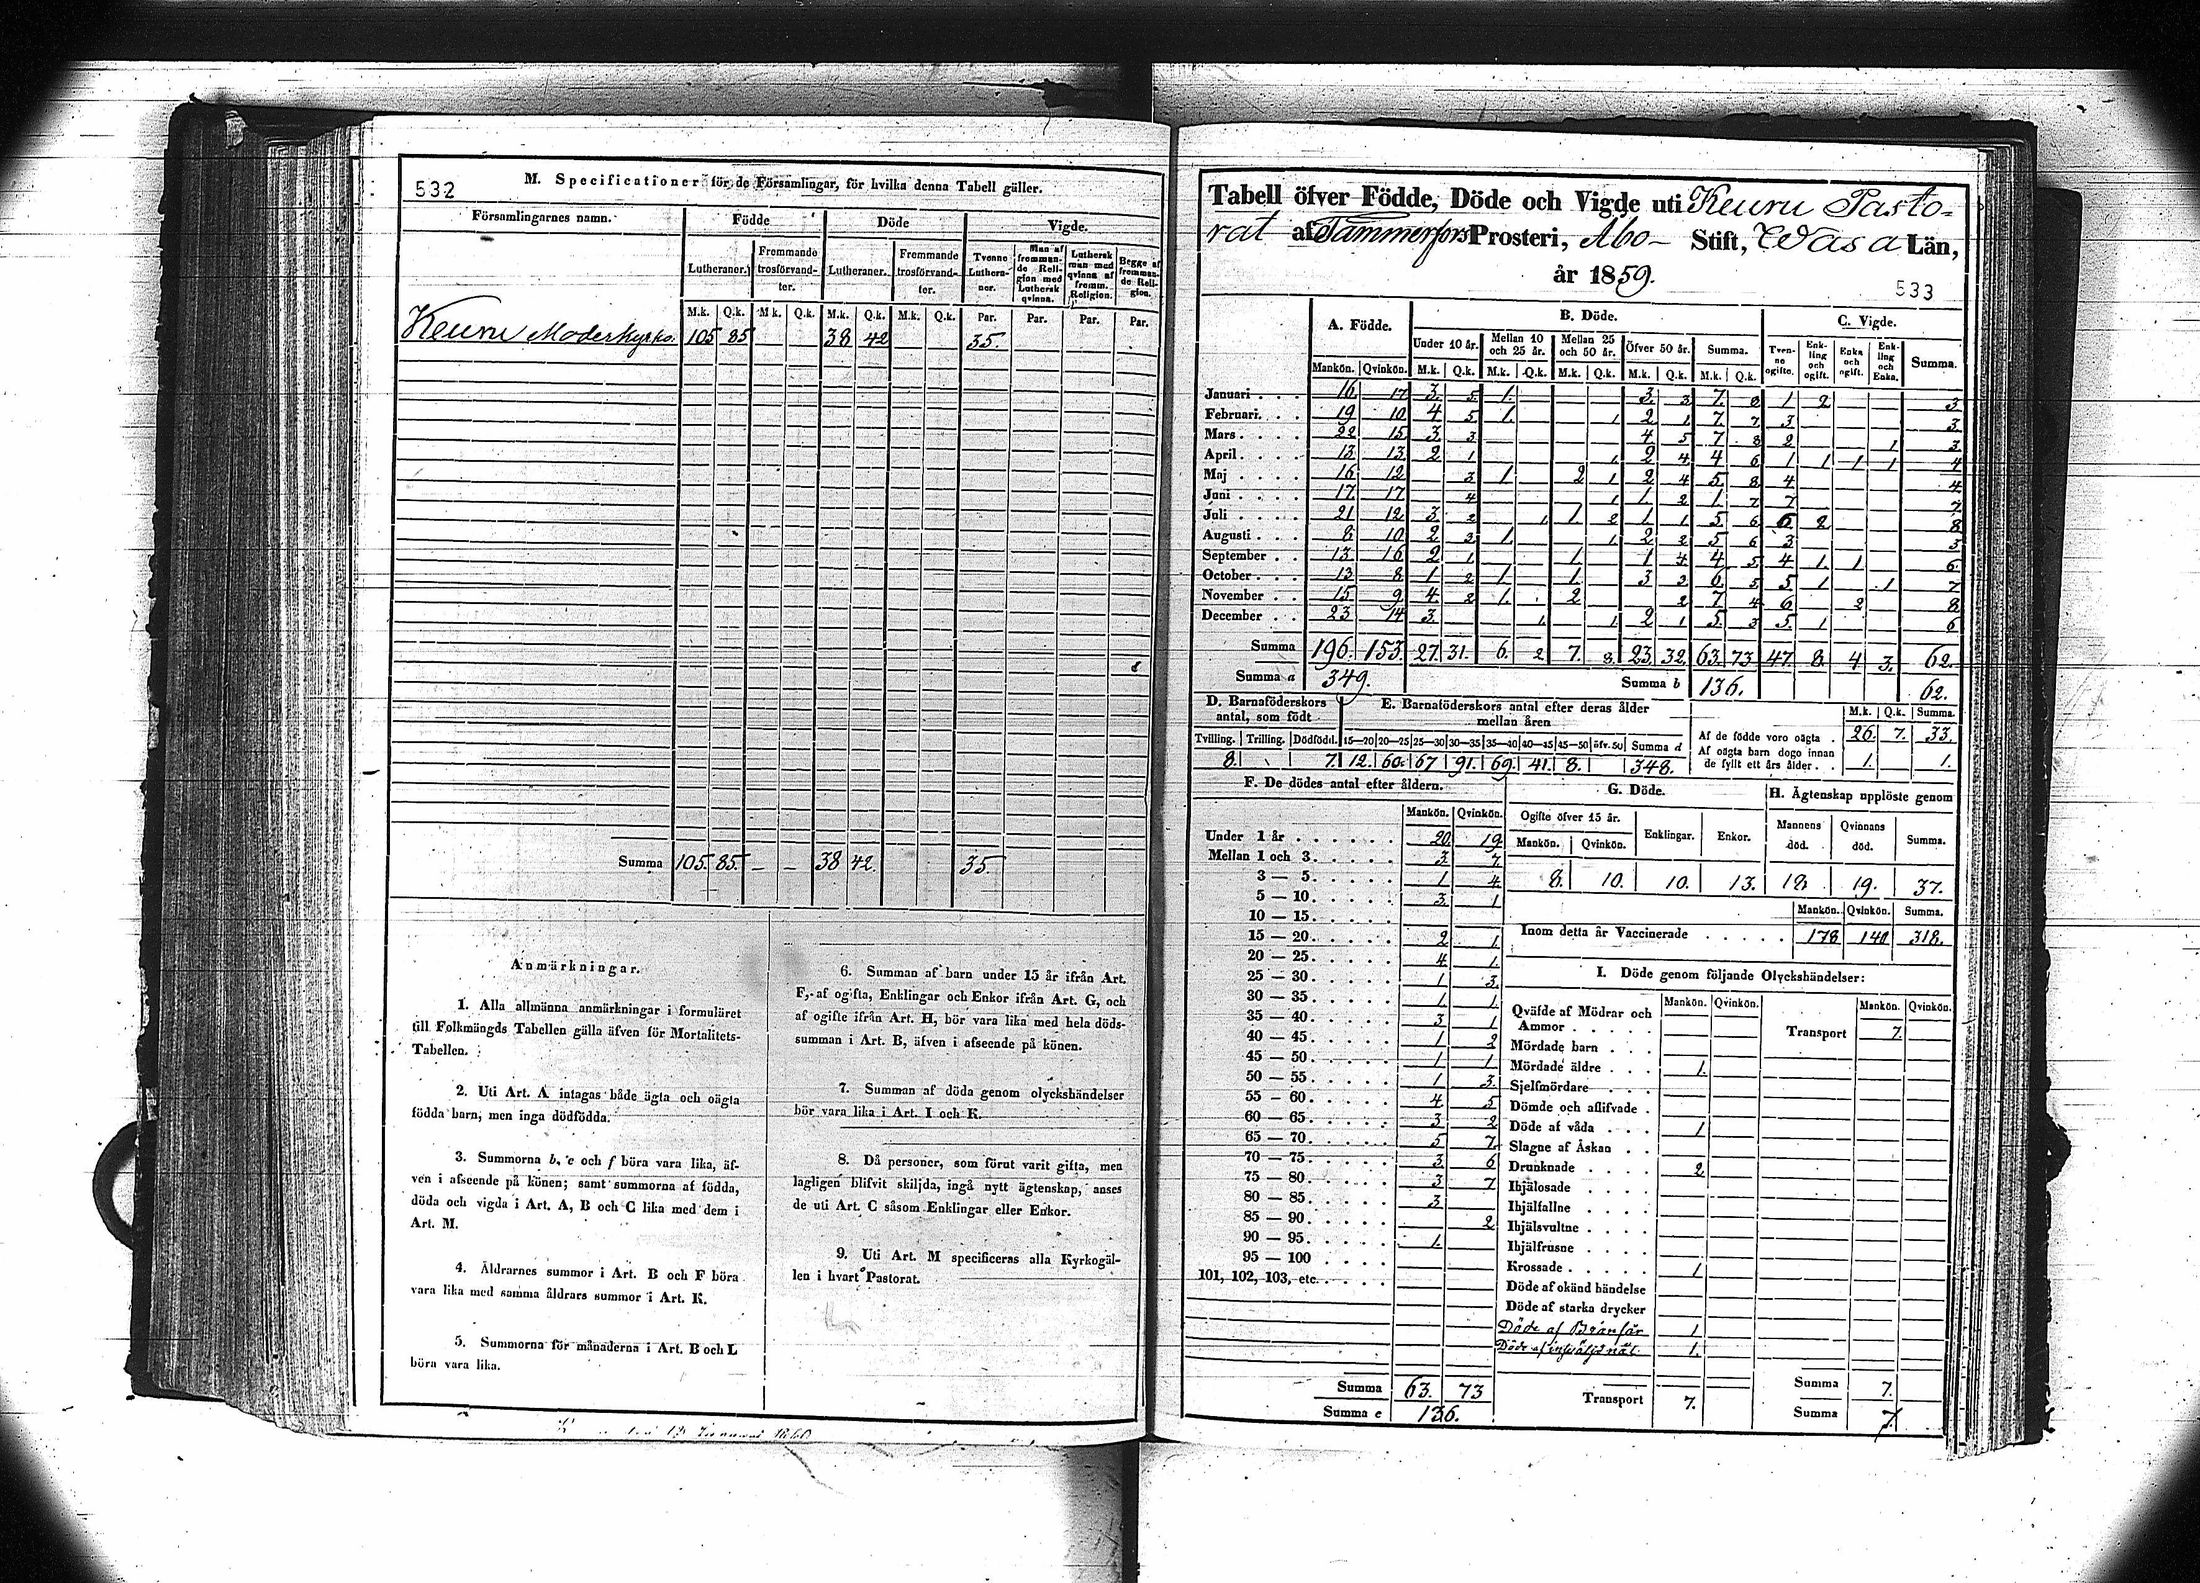 532
M. Specificationer för de Församlingar, för hvilka denna Tabell gäller.
Församlingarnes namn. Födde Döde Vigde.
Lutheraner. Frommande trosförvandter. Lutheraner. Frommande trosförvandter. Tvenne Lutheraner. Man af frommande Religion med Luthersk qvinna. Luthersk man med qvinna af fromm. Religion. Begge af frommande Religion.
M.k. Q.k. M.k. Q.k. M.k. Q.k. M.k. Q.k. Par. Par. Par. Par.
Keuru Moderkyrko. 105 85 38 42 35.
Summa 105. 85. – – 38 42. 35.
Anmärkningar.
1. Alla allmänna anmärkningar i formuläret
till Folkmängds Tabellen gälla äfven för Mortalitets-
Tabellen.
2. Uti Art. A intagas både ägta och oägta
födda barn, men inga dödfödda.
3. Summorna b, e och f böra vara lika, äf-
ven i afseende på könen; samt summorna af födda,
döda och vigda i Art. A, B och C lika med dem i
Art. M.
4. Åldrarnes summor i Art. B och F böra
vara lika med samma åldrars summor i Art. K.
5. Summorna för månaderna i Art. B och L
böra vara lika.
6. Summan af barn under 15 år ifrån Art.
F, af ogifta, Enklingar och Enkor ifrån Art. G, och
af ogifte ifrån Art. H, bör vara lika med hela döds-
summan i Art. B, äfven i afseende på könen.
7. Summan af döda genom olyckshändelser
bör vara lika i Art. I och K.
8. Då personer, som förut varit gifta, men
lagligen blifvit skiljda, ingå nytt ägtenskap, anses
de uti Art. C såsom Enklingar eller Enkor.
9. Uti Art. M specificeras alla Kyrkogäl-
len i hvart Pastorat.
Tabell öfver Födde, Döde och Vigde uti Keuru Pasto-
rat af Tammerfors Prosteri, Åbo – Stift, Wasa Län,
år 1859.
533
A. Födde. B. Döde. C. Vigde.
Under 10 år. Mellan 10 och 25 år. Mellan 25 och 50 år. Öfver 50 år. Summa. Tvenne ogifte. Enkling och ogift. Enka och ogift. Enkling och Enka. Summa.
Mankön. Qvinkön. M.k. Q.k. M.k. Q.k. M.k. Q.k. M.k. Q.k. M.k. Q.k.
Januari 16. 17 3. 5. 1. 3. 3 7. 8 1 2 3
Februari. 19 10 4 5 1. 1 2 1 7 7 3 3
Mars 22 15 3 3 4 5 7 8 2 1 3
April. 13 13 2 1 1 2 4 4 6 1 1 1 1 4
Maj 16 12 3 1 2 1 2 4 5 8 4 4
Juni 17 17 4 1 1 2 1 7 7 7
Juli 21 12 3 2 1 1 2 1 1 5 6 6 2 8
Augusti 8 10 2 3 1 1 2 2 5 6 3 3
September 13 16 2 1 1 1 4 4 5 4 1 1 6
October 13 8 1 2 1 1 3 3 6 5 5 1 1 7
November 15 9 4 2 1. 2 2 7 4 6 2 8
December 23 14 3 1 1 2 1 5 3 5 1 6
Summa 196. 153. 27. 31. 6. 2 7. 8. 23. 32. 63. 73 47. 8. 4 3. 62.
Summa a 349. Summa b 136. 62.
D. Barnaföderskors antal, som född E. Barnaföderskors antal efter deras ålder mellan åren
M.k. Q.k. Summa.
Tvilling. Trilling. Dödfödd. 15—20 20—25 25—30 30—35 35—40 40—45 45—50 öfv. 50 Summa d
8. 7. 12. 60. 67 91. 69. 41. 8. 348.
Af de födde voro oägta 26. 7. 33.
Af oägta barn dogo innan
de fyllt ett års ålder 1. 1.
F. De dödes antal efter åldern.
Mankön. Qvinkön.
Under 1 år 20. 19.
Mellan 1 och 3 3. 7.
3 — 5 1 4.
5 — 10 3. 1
10 — 15
15 — 20 2 1.
20 — 25 4. 1.
25 — 30 1 3.
30 — 35 1 1.
35 — 40 3 1
40 — 45 1 2
45 — 50 1 1
50 — 55 1 3.
55 — 60 4. 5
60 — 65 3 2
65 — 70 5 7
70 — 75 3. 6
75 — 80 3 7
80 — 85 3
85 — 90 2
90 — 95 1.
95 — 100
101, 102, 103, etc.
Summa 63. 73
Summa e 136.
G. Döde.
Ogifte öfver 15 år. Enklingar. Enkor.
Mankön. Qvinkön.
8. 10. 10. 13.
H. Ägtenskap upplöste genom
Mannens död. Qvinnans död. Summa.
18. 19. 37.
Mankön. Qvinkön. Summa.
Inom detta år Vaccinerade 178 140 318.
I. Döde genom följande Olyckshändelser:
Mankön. Qvinkön. Mankön. Qvinkön.
Qväfde af Mödrar och
Ammor
Transport 7.
Mördade barn
Mördade äldre 1.
Sjelfmördare
Dömde och aflifvade
Döde af våda 1
Slagne af Åskan
Drunknade 2
Ihjälosade
Ihjälfallne
Ihjälsvultne
Ihjälfrusne
Krossade 1
Döde af okänd händelse
Döde af starka drycker
Döde af 1
Döde af 1.
Summa 7.
Transport 7. Summa 7.